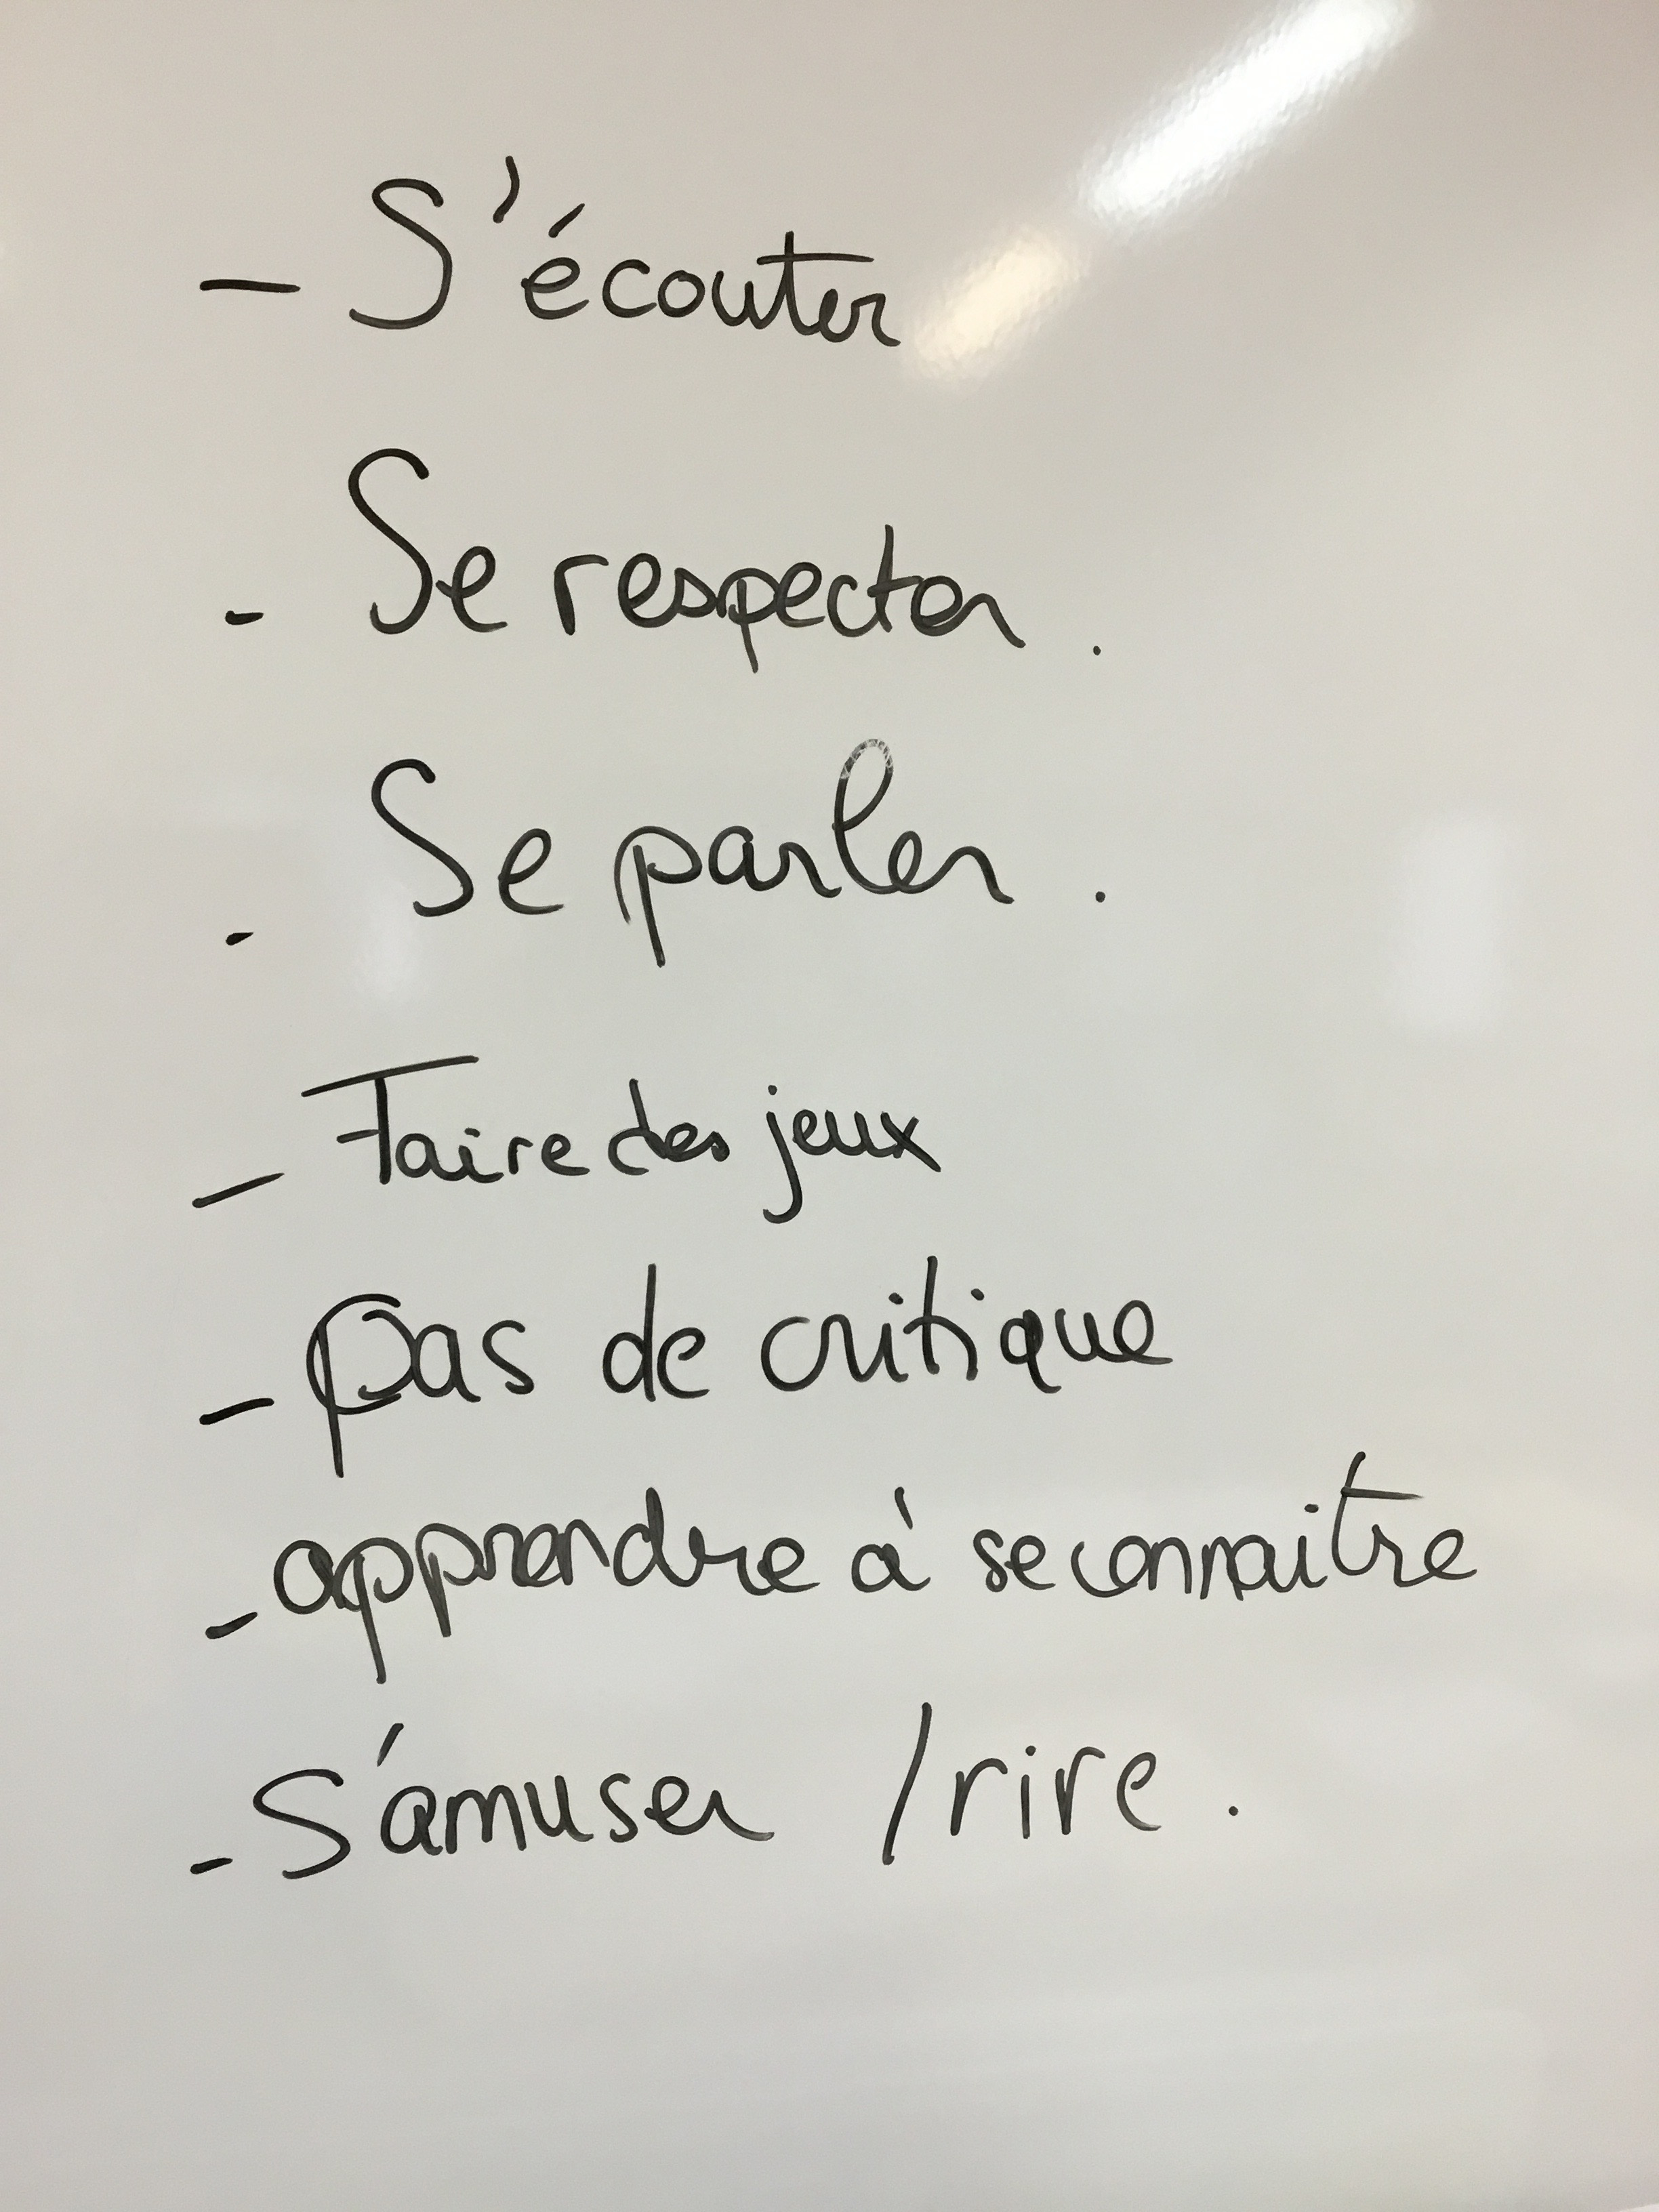 - S'écouter
- Se respecter .
- Se parler .
- Faire des jeux
- Pas de critique
- apprendre à se connaitre
- S'amuser / rire .